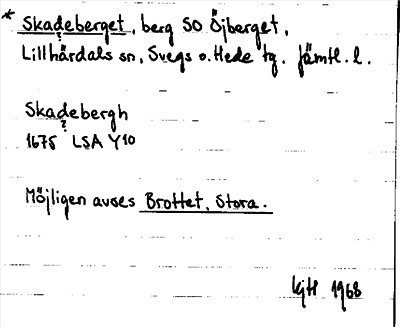 * Skadeberget, berg SO Öjberget,
?
Lillhärdals sn, Svegs o. Hede tg. Jämtl. l.
Skadebergh
?
1675 LSA Y10
Möjligen avses Brottet, Stora.
1968